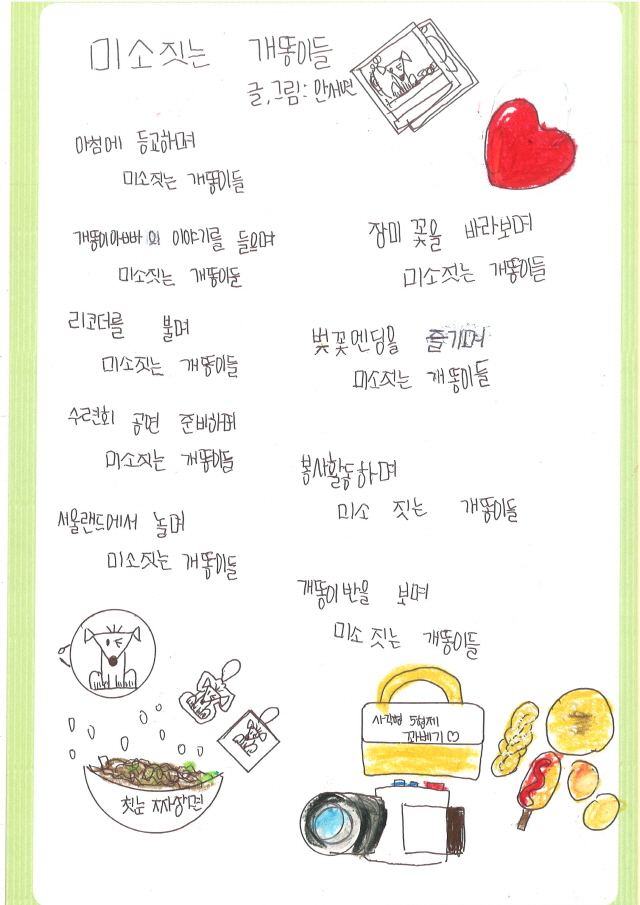 미소짓는 개똥이들
글,그림: 안세연
아침에 등교하며
미소짓는 개똥이들
개똥이아빠의 이야기를 들으며
미소짓는 개똥이들
리코더를 불며
미소짓는 개똥이들
수련회 공연 준비하며
미소짓는 개똥이들
서울랜드에서 놀며
미소짓는 개똥이들
장미 꽃을 바라보며
미소짓는 개똥이들
벚꽃엔딩을 즐기며
미소짓는 개똥이들
봉사활동하며
미소 짓는 개똥이들
개똥이반을 보며
미소 짓는 개똥이들
사각형 5형제
꽈배기♡
첫눈 짜장면